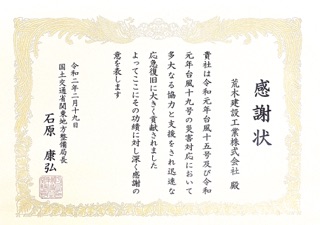 感謝状
荒木建設工業株式会社 殿
貴社は令和元年台風十五号及び令和
元年台風十九号の災害対応において
多大なる協力と支援をされ迅速な
応急復旧に大きく貢献されました
よってここにその功績に対し深く感謝の
意を表します
令和二年二月十九日
国土交通省関東地方整備局長
石原 康弘